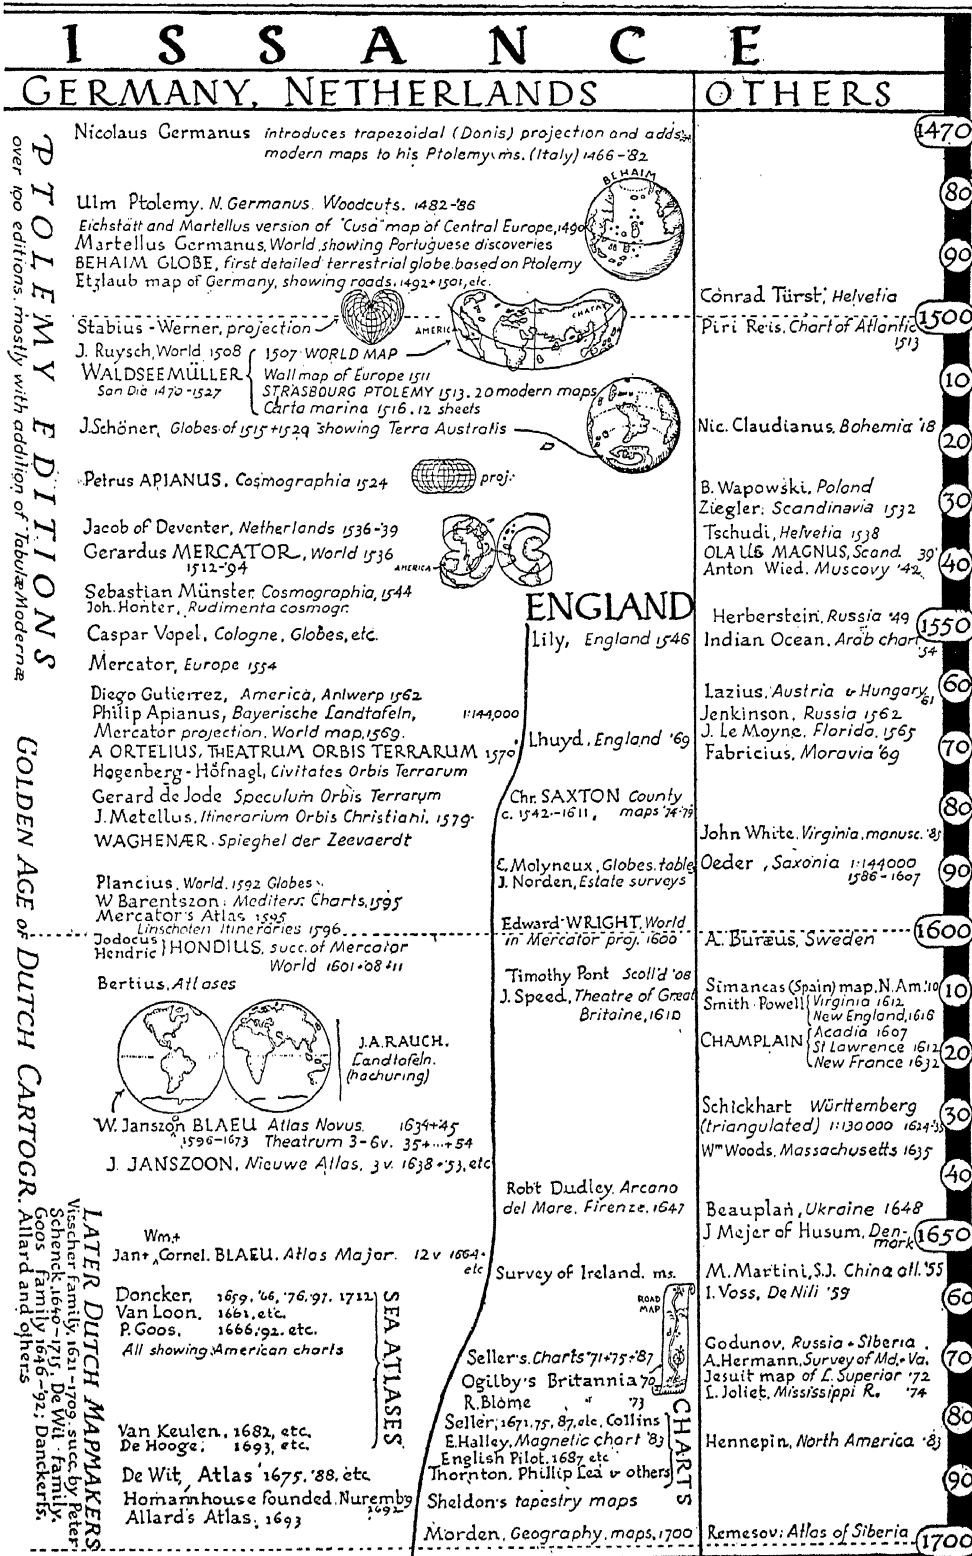 ISSANCE
GERMANY, NETHERLANDS
Nicolaus Germanus introduces trapezoidal (Donis) projection and adds
modern maps to his Ptolemy ms. (Italy) 1466-'82
BEHAIM
Ulm Ptolemy. N. Germanus. Woodcuts. 1482-'86
Eichstätt and Martellus version of "Cusa" map of Central Europe, 1490
Martellus Germanus, World showing Portuguese discoveries
BEHAIM GLOBE, first detailed terrestrial globe. based on Ptolemy
Etzlaub map of Germany, showing roads, 1492+1501, etc.
Stabius-Werner, projection
AMERICA
CHATAY
J. Ruysch, World 1508
WALDSEEMÜLLER
San Dié 1470-1527
1507 WORLD MAP
Wall map of Europe 1511
STRASBOURG PTOLEMY 1513. 20 modern maps
Carta marina 1516. 12 sheets
J. Schöner, Globes of 1515+1529 showing Terra Australis
Petrus APIANUS, Cosmographia 1524
proj.
Jacob of Deventer, Netherlands 1536-'39
Gerardus MERCATOR, World 1536
1512-'94
AMERICA
Sebastian Münster, Cosmographia, 1544
Joh. Honter, Rudimenta cosmogr.
Caspar Vopel, Cologne, Globes, etc.
Mercator, Europe 1554
Diego Gutierrez, America, Antwerp 1562
Philip Apianus, Bayerische Landtafeln, 1:144,000
Mercator projection. World map, 1569.
A ORTELIUS, THEATRUM ORBIS TERRARUM 1570
Hogenberg-Höfnagl, Civitates Orbis Terrarum
Gerard de Jode Speculum Orbis Terrarum
J. Metellus, Itinerarium Orbis Christiani, 1579.
WAGHENÆR. Spieghel der Zeevaerdt
Plancius, World. 1592 Globes
W Barentszon: Mediterr. Charts, 1595
Mercator's Atlas 1595
Linschoten Itineraries 1596
Jodocus
Hendric
HONDIUS, succ. of Mercator
World 1601+08+11
Bertius, Atlases
J.A. RAUCH.
Landtafeln.
(hachuring)
W. Janszon BLAEU Atlas Novus. 1634+45
1596-1673 Theatrum 3-6v. 35+...+54
J. JANSZOON, Nieuwe Atlas, 3 v. 1638+'53, etc
Wm.+
Jan+ Cornel. BLAEU. Atlas Major. 12 v 1664-
etc
Doncker, 1659, '66, '76, '97, 1712
Van Loon, 1661, etc.
P. Goos, 1666, '92, etc.
All showing American charts
Van Keulen, 1682, etc.
De Hooge, 1693, etc.
SEA ATLASES
De Wit, Atlas 1675, '88, etc
Homannhouse founded. Nuremby
1692
Allard's Atlas, 1693
PTOLEMY EDITIONS
over 100 editions, mostly with addition of Tabulæ Modernæ
GOLDEN AGE OF DUTCH CARTOGR.
LATER DUTCH MAPMAKERS
Visscher family, 1621-1709, succ. by Peter
Schenck, 1640-1715, De Wit family,
Goos family 1646-'92; Danckerts,
Allard and others
ENGLAND
Lily, England 1546
Lhuyd, England '69
Chr. SAXTON County
c. 1542-1611, maps '74-79
E. Molyneux, Globes, table
J. Norden, Estate surveys
Edward WRIGHT, World
in Mercator proj. 1600
Timothy Pont Scotl'd '08
J. Speed, Theatre of Great
Britaine, 1610
Robt Dudley, Arcano
del Mare, Firenze, 1647
Survey of Ireland, ms.
ROAD
MAP
Seller's. Charts '71+75+'87
Ogilby's Britannia 70
R. Blome " '73
Seller, 1671, 75, 87, etc, Collins
E. Halley, Magnetic chart '83
English Pilot, 1687 etc
Thornton, Phillip Lea & others
CHARTS
Sheldon's tapestry maps
Morden, Geography, maps, 1700
OTHERS
Conrad Türst, Helvetia
Piri Reis, Chart of Atlantic
1513
Nic. Claudianus, Bohemia '18
B. Wapowski, Poland
Ziegler: Scandinavia 1532
Tschudi, Helvetia 1538
OLAUS MAGNUS, Scand. 39'
Anton Wied. Muscovy '42
Herberstein, Russia '49
Indian Ocean. Arab chart
'54
Lazius, Austria & Hungary
'61
Jenkinson, Russia 1562
J. Le Moyne, Florida, 1565
Fabricius, Moravia '69
John White, Virginia, manusc. '85
Oeder, Saxonia 1:144000
1586-1607
A. Buræus, Sweden
Simancas (Spain) map, N.Am. '10
Smith-Powell
Virginia 1612
New England, 1616
CHAMPLAIN
Acadia 1607
St Lawrence 1612
New France 1632
Schickhart Württemberg
(triangulated) 1:130000 1624-'35
Wm Woods, Massachusetts 1635
Beauplan, Ukraine 1648
J Mejer of Husum, Den-
mark
M. Martini, S.J. China atl. '55
I. Voss, De Nili '59
Godunov, Russia + Siberia
A. Hermann, Survey of Md. + Va.
Jesuit map of L. Superior '72
L. Joliet, Mississippi R. '74
Hennepin, North America '83
Remesov: Atlas of Siberia
1470
80
90
1500
10
20
30
40
1550
60
70
80
90
1600
10
20
30
40
1650
60
70
80
90
1700